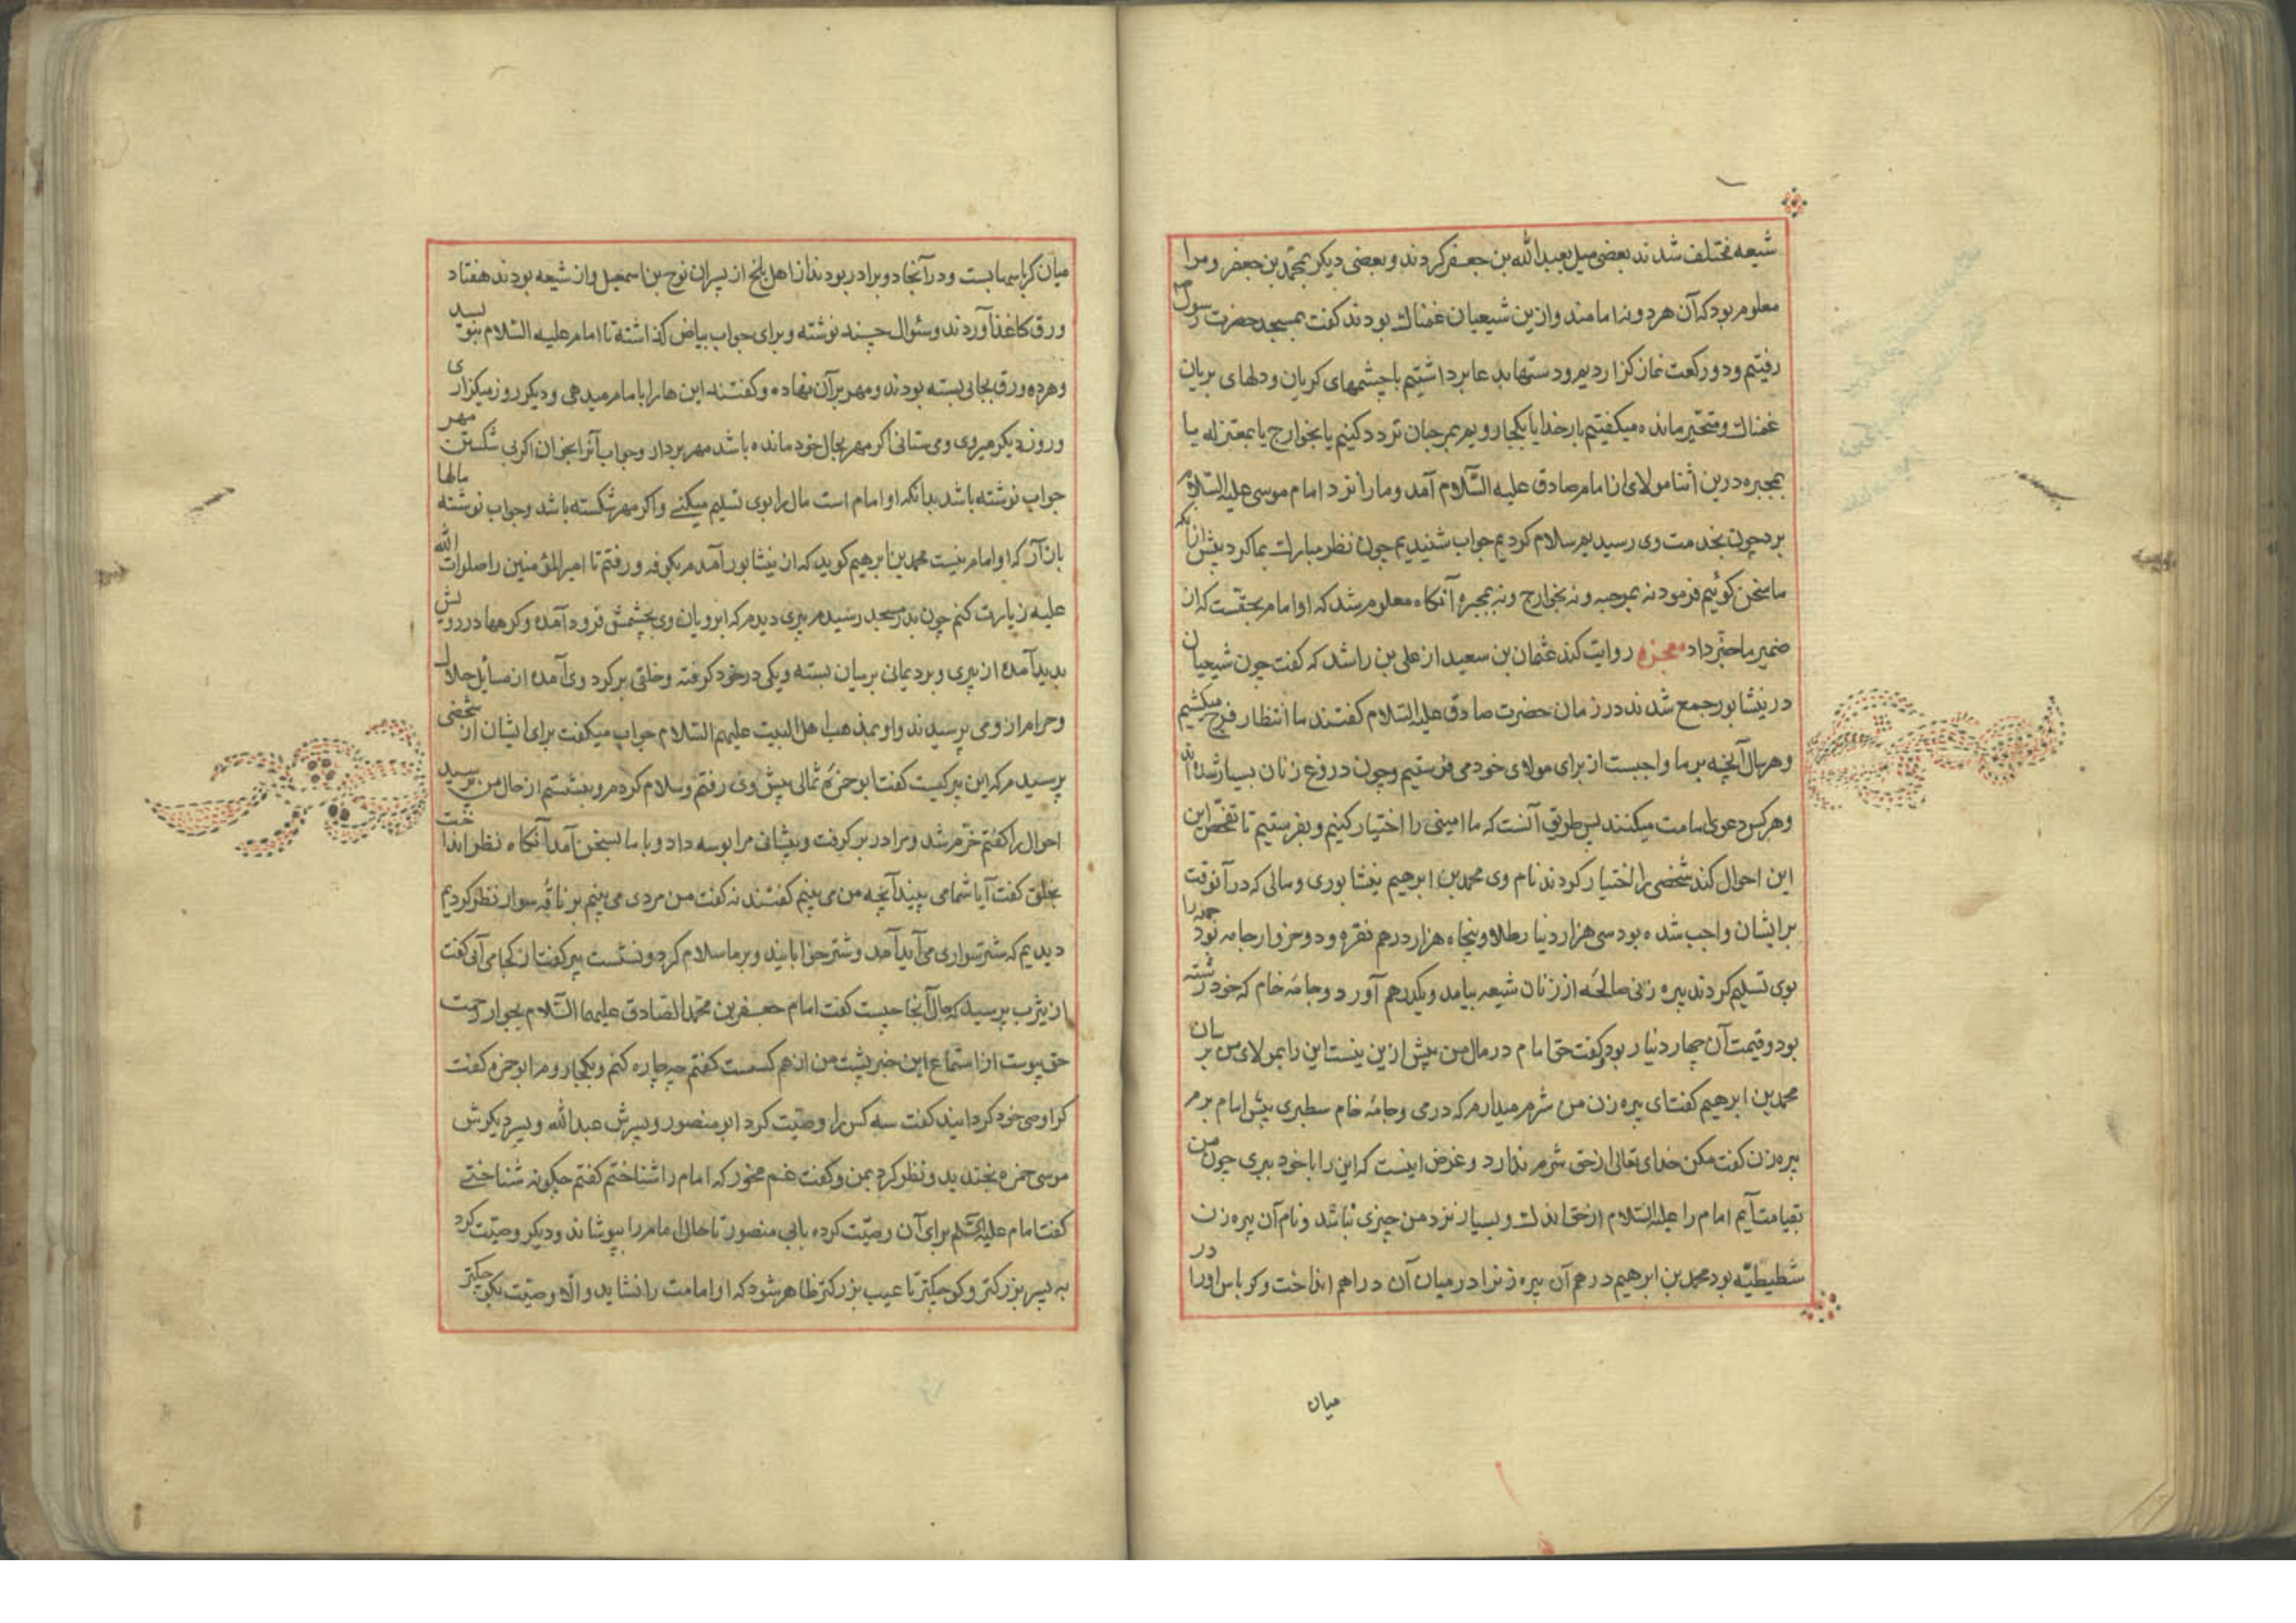 شیعه مختلف شدند بعضی میل بعبدالله بن جعفر کردند و بعضی دیکر بمحمد بن جعفر و مرا
معلوم بود که آن هر دو نه امامند و ازین شیعیان غمناک بودند کفت بمسجد حضرت رسول
رفتیم و دو رکعت نماز کزاردیم و دستها بدعا برداشتیم با چشمهای کریان و دلهای بریان
غمناک و متحیر مانده میکفتیم بار خدایا بکجا رویم بمرجیان تردد کنیم یا بخوارج یا بمعتزله یا
بمجبره درین اثنا مولای از امام صادق علیه السّلام آمد و ما را نزد امام موسی علیه السّلام
برد چون بخدمت وی رسیدیم سلام کردیم جواب شنیدیم چون نظر مبارک بما کرد پیش از آنکه
ما سخن کوئیم فرمود نه بمرجیه و نه بخوارج و نه بمجبره آنکاه معلوم شد که او امام بحقست که از
ضمیر ما خبر داد معجزه روایت کند عثمان بن سعید از علی بن راشد که کفت چون شیعیان
در نیشابور جمع شدند در زمان حضرت صادق علیه السّلام کفتند ما انتظار فرج میکشیم
و هر سال آنچه بر ما واجبست از برای مولای خود می فرستیم و چون دروغ زنان بسیار شده اند
و هر کس دعوی امامت میکنند پس طریق آنست که ما امینی را اختیار کنیم و بفرستیم تا تفحص این
این احوال کند شخصی را اختیار کردند نام وی محمد بن ابرهیم نیشابوری و مالی که در آنوقت
بر ایشان واجب شده بود سی هزار دینار طلا و پنجاه هزار درهم نقره و دو خروار جامه بود جمله را
بوی تسلیم کردند پیره زنی صالحه از زنان شیعه بیامد و یکدرهم آورد و جامهٔ خام که خود رشته
بود و قیمت آن چهار دینار بود و کفت حق امام در مال من بیش ازین نیست این را بمولای من برسان
محمد بن ابرهیم کفت ای پیره زن من شرم میدارم که درمی و جامهٔ خام سطبری پیش امام برم
پیره زن کفت مکن خدای تعالی از حق شرم ندارد و غرض اینست که این را با خود ببری چون من
بقیامت آیم امام را علیه السّلام از حق اندک و بسیار نزد من چیزی نباشد و نام آن پیره زن
شطیطیّه بود محمد بن ابرهیم درهم آن پیره زنرا در میان آن دراهم انداخت و کرباس او را در
میان
میان کرباسها بست و در آنجا دو برادر بودند از اهل بلخ از پسران نوح بن اسمعیل و از شیعه بودند هفتاد
ورق کاغذ آوردند و سئوال چند نوشته و برای جواب بیاض کذاشته تا امام علیه السّلام بنویسد
و هر ده ورق بجائی بسته بودند و مهر بر آن نهاده و کفتند این ها را بامام میدهی و دیکر روز میکزاری
و روز دیکر میروی و می ستانی اکر مهر بحال خود مانده باشد مهر بردار و جواب آنرا بخوان اکر بی شکستن مهر
جواب نوشته باشد بدانکه او امام است مال را بوی تسلیم میکنی و اکر مهر شکسته باشد و جواب نوشته مالها
باز آر که او امام نیست محمد بن ابرهیم کوید که از نیشابور آمدم بکوفه و رفتم تا امیرالمؤمنین را صلوات الله
علیه زیارت کنم چون بدر مسجد رسیدم پیری دیدم که ابرویان وی بچشمش فرود آمده و کرهها در رویش
پدید آمده از پیری و برد یمانی بر میان بسته و یکی در خود کرفته و خلقی بر کرد وی آمده از مسایل حلال
و حرام از وی می پرسیدند و او بمذهب اهل البیت علیهم السّلام جواب میکفت برای ایشان از شخصی
پرسیدم که این پیر کیست کفت ابو حمزهٔ ثمالی پیش وی رفتم و سلام کردم و بنشستم از حال من پرسید
احوال را کفتم خرّم شد و مرا در بر کرفت و پیشانی مرا بوسه داد و با ما بسخن آمد آنکاه نظر انداخت
بخلق کفت آیا شما می بینید آنچه من می بینم کفتند نه کفت من مردی می بینم بر ناقه سوار نظر کردیم
دیدیم که شتر سواری می آید آمد و شتر خوابانید و بر ما سلام کرد و نشست پیر کفت از کجا می آئی کفت
از یثرب پرسید که حال آنجا چیست کفت امام جعفر بن محمد الصّادق علیهما السّلام بجوار رحمت
حق پیوست از استماع این خبر پشت من از هم کسست کفتم چه چاره کنم و بکجا روم ابو حمزه کفت
کرا وصی خود کردانید کفت سه کس را وصیّت کرد ابو منصور و پسرش عبدالله و پسر دیکرش
موسی حمزه بخندید و نظر کرد بمن و کفت غم مخور که امام را شناختم کفتم چکونه شناختی
کفت امام علیه السّلم برای آن وصیّت کرده بابی منصور تا حال امام را بپوشاند و دیکر وصیّت کرد
به پسر بزرکتر و کوچیکتر تا عیب بزرکتر ظاهر شود که او امامت را نشاید و الّا وصیّت بکوچیکتر